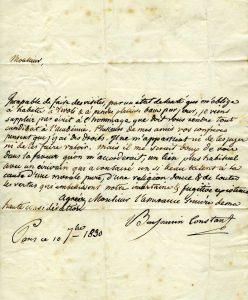 Monsieur,
Incapable de faire des visites, par un état de santé qui m'oblige
à habiter à Tivoli & à prendre plusieurs bains par jour, je viens
suppléer par écrit à l'hommage que doit vous rendre tout
candidat à l'académie. Plusieurs de mes amis vos confrères
pensent que j'ai des droits. Il ne m'appartient ni de les juger
ni de les faire valoir. mais il me serait doux de
la faveur qu'on m'accorderait, un lien plus habituel
avec un écrivain qui a consacré un si beau talent à la
cause d'une morale pure, d'une religion douce & de toutes
les vertus qui embellissent notre incertaine & fugitive existence
Agréez, Monsieur l'assurance sincère de ma
haute considération
Benjamin Constant
Paris ce 10 7bre 1830